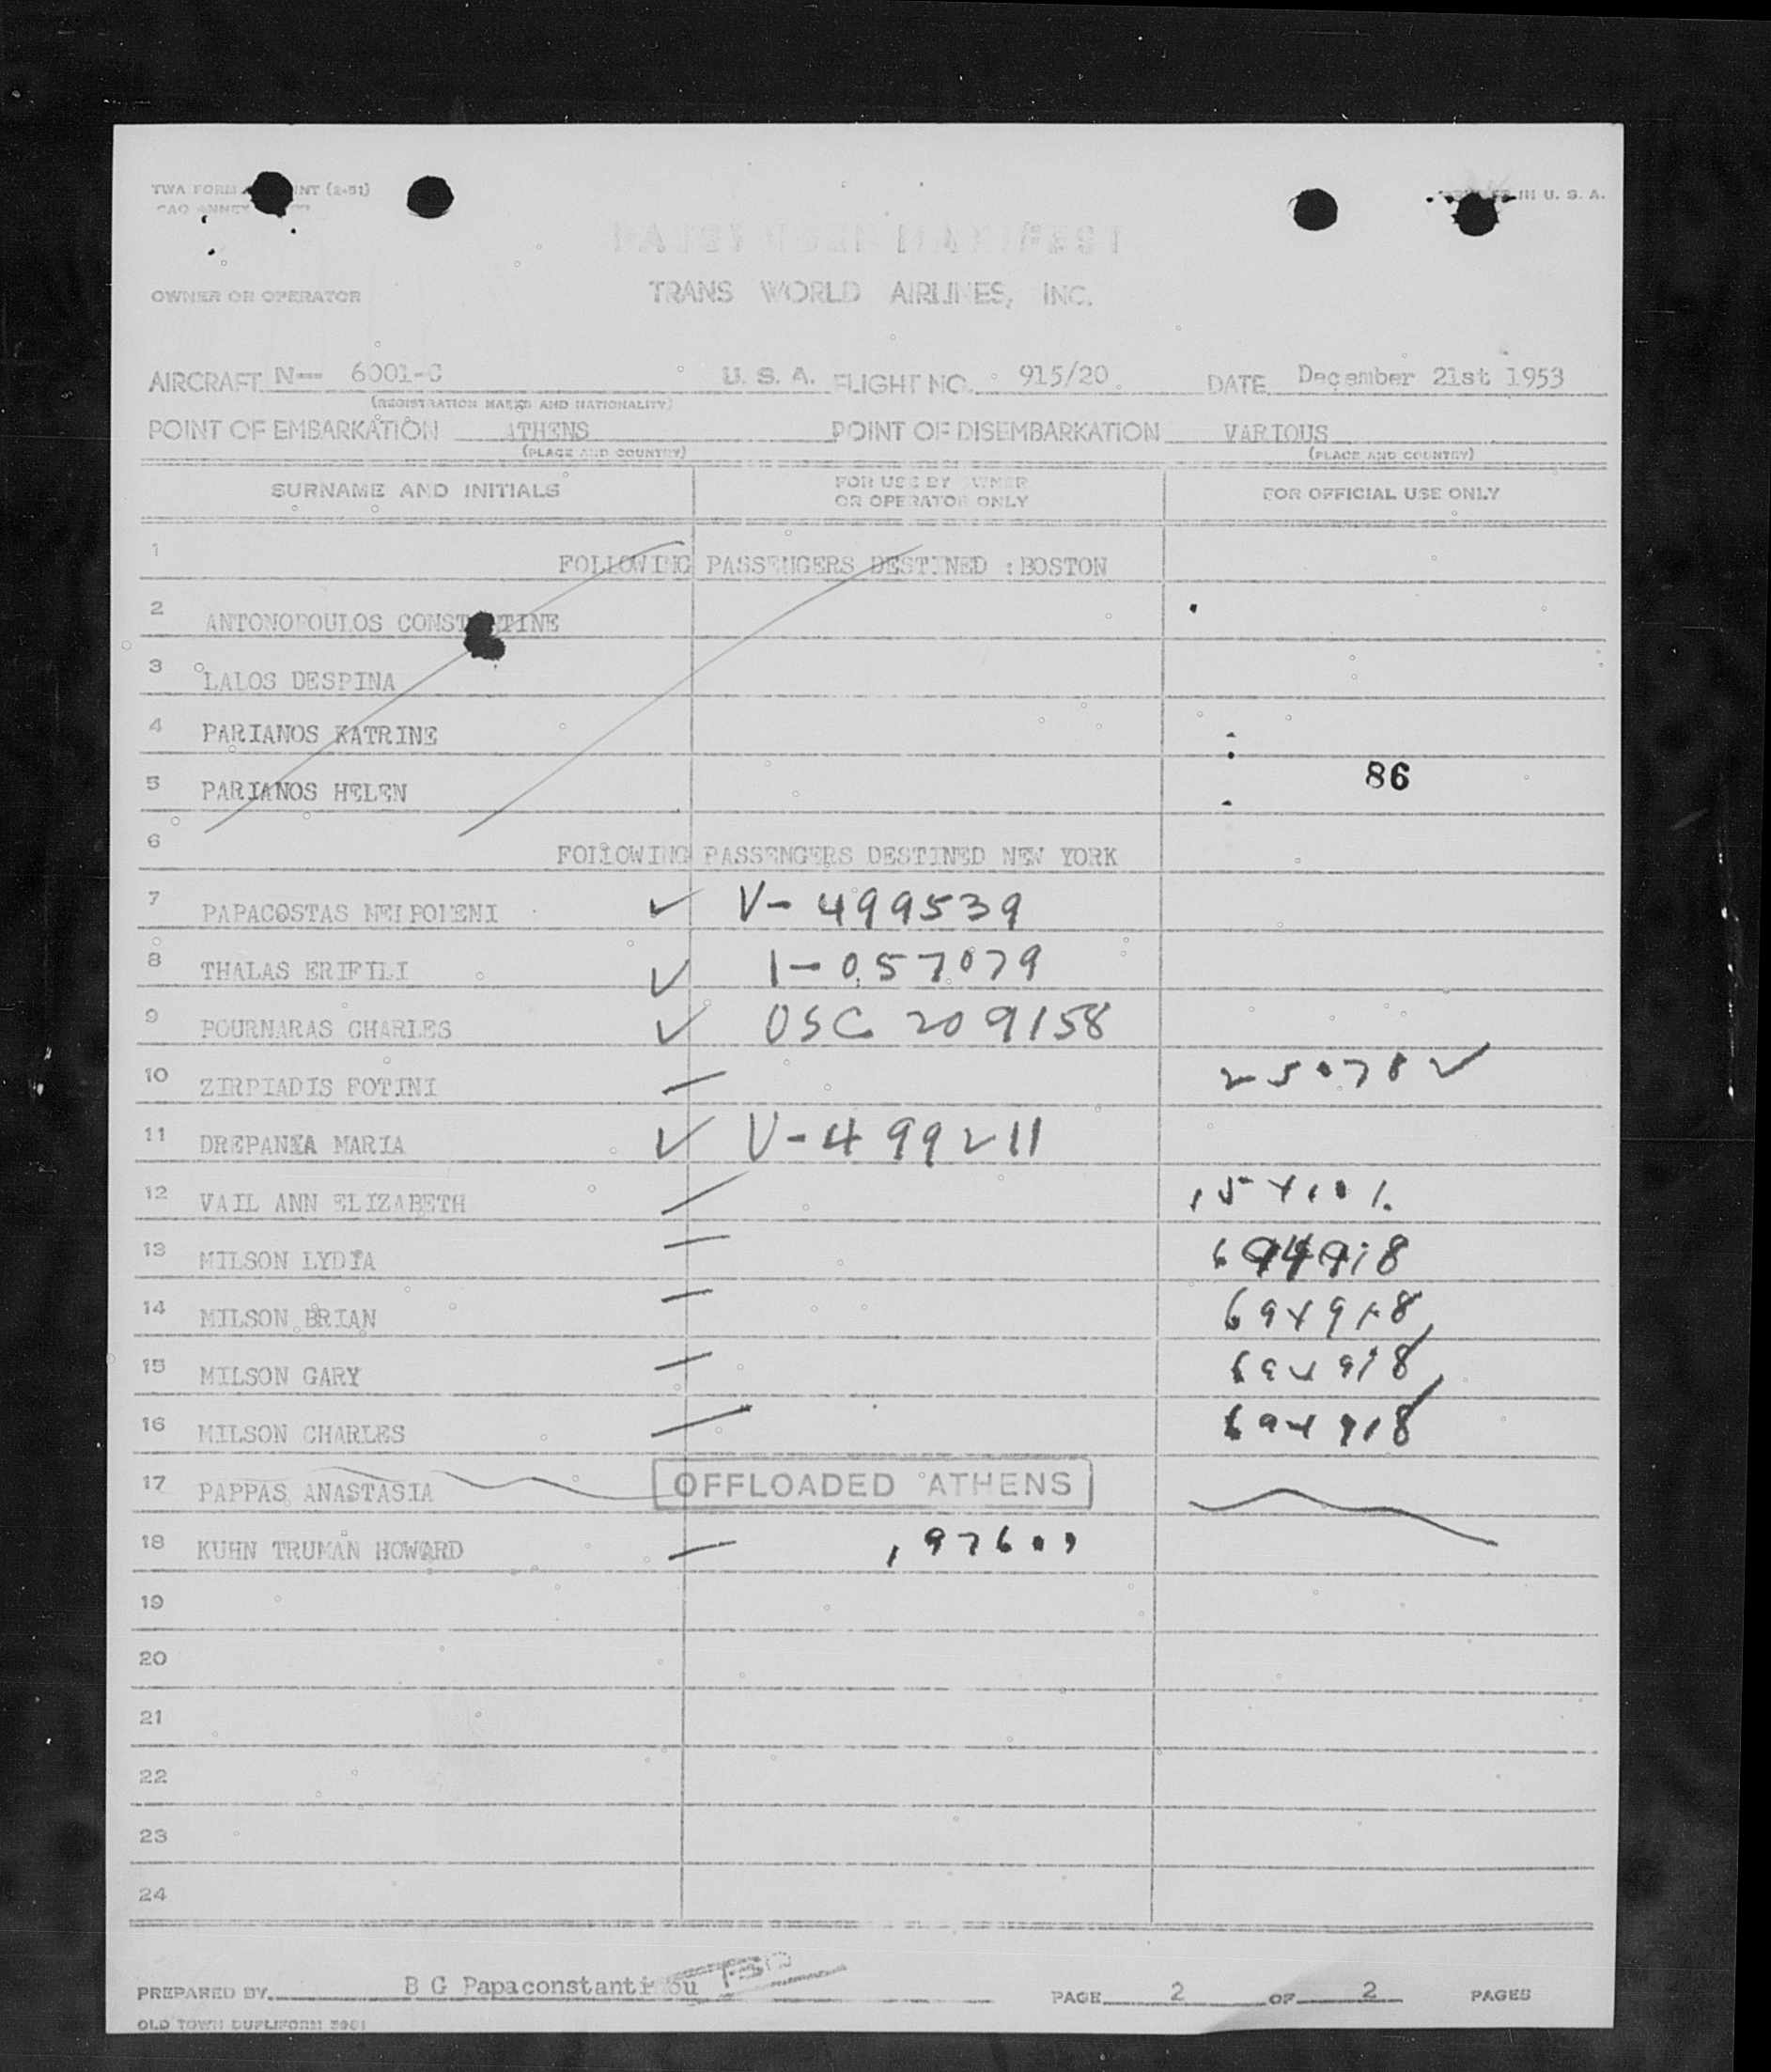 TWA FORM INT (2-51)
IN U. S. A.
PASSENGER MANIFEST
OWNER OR OPERATOR TRANS WORLD AIRLINES, INC.
AIRCRAFT N-- 6001-C U. S. A. FLIGHT NO. 915/20 DATE December 21st 1953
(REGISTRATION MARKS AND NATIONALITY)
POINT OF EMBARKATION ATHENS POINT OF DISEMBARKATION VARIOUS
(PLACE AND COUNTRY) (PLACE AND COUNTRY)
SURNAME AND INITIALS FOR USE BY OWNER OR OPERATOR ONLY FOR OFFICIAL USE ONLY
1 FOLLOWING PASSENGERS DESTINED :BOSTON
2 ANTONOPOULOS CONSTANTINE
3 LALOS DESPINA
4 PARIANOS KATRINE
5 PARIANOS HELEN 86
6 FOLLOWING PASSENGERS DESTINED NEW YORK
7 PAPACOSTAS MELPOMENI ✓ V-499539
8 THALAS ERIFILI ✓ 1-057079
9 POURNARAS CHARLES ✓ OSC 209158
10 ZIRPIADIS FOTINI —
11 DREPANIA MARIA ✓ V-499211
12 VAIL ANN ELIZABETH —
13 MILSON LYDIA — 694918
14 MILSON BRIAN — 694918
15 MILSON GARY — 694918
16 MILSON CHARLES — 694918
17 PAPPAS ANASTASIA OFFLOADED ATHENS
18 KUHN TRUMAN HOWARD —
19
20
21
22
23
24
PREPARED BY B G Papaconstantinou PAGE 2 OF 2 PAGES
OLD TOWN DUPLIFORM